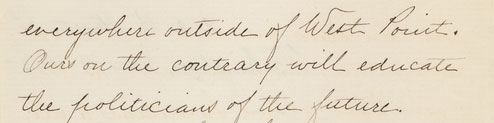 everywhere outside of West Point.
Ours on the contrary will educate
the politicians of the future.